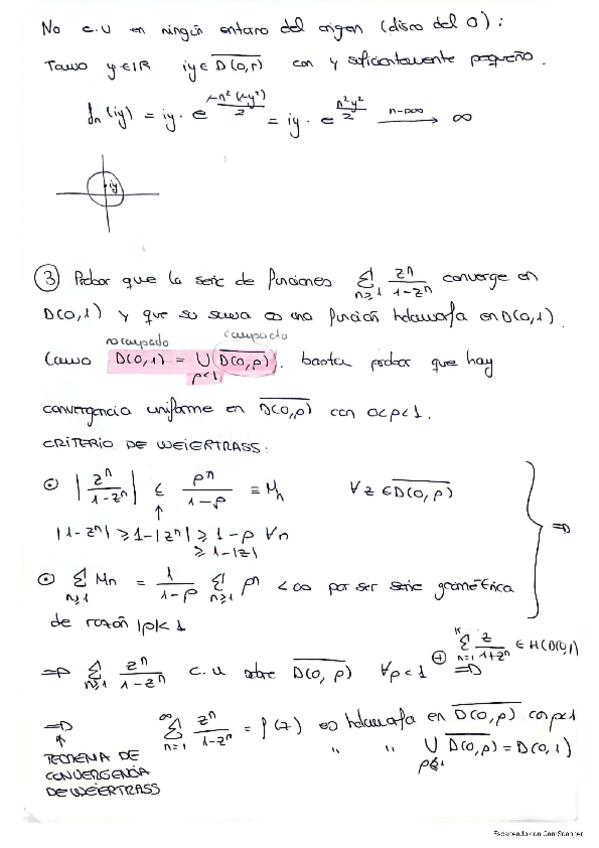 No c.u en ningún entorno del origen (disco del 0):
Tomo y∈ℝ iy∈D̅(̅0̅,̅ρ̅)̅ con y suficientemente pequeño.
fₙ(iy) = iy · e^(-n²(-y²)/2) = iy · e^(n²y²/2) →(n→∞) ∞
iy
③ Probar que la serie de funciones Σ_{n≥1} zⁿ/(1-zⁿ) converge en
D(0,1) y que su suma es una función holomorfa en D(0,1).
no compacto compacto
Como D(0,1) = ∪_{ρ<1} D̅(̅0̅,̅ρ̅)̅. basta probar que hay
convergencia uniforme en D̅(̅0̅,̅ρ̅)̅ con 0<ρ<1.
CRITERIO DE WEIERTRASS:
⊙ |zⁿ/(1-zⁿ)| ≤ ρⁿ/(1-ρ) ≡ Mₙ ∀z∈D̅(̅0̅,̅ρ̅)̅
↑
|1-zⁿ| ≥ 1-|zⁿ| ≥ 1-ρ ∀n ⇒
≥ 1-|z|
⊙ Σ_{n≥1} Mₙ = 1/(1-ρ) Σ_{n≥1} ρⁿ < ∞ por ser serie geométrica
de razón |ρ|<1
⇒ Σ_{n≥1} zⁿ/(1-zⁿ) c.u sobre D̅(̅0̅,̅ρ̅)̅ ∀ρ<1 ⊕ Σ_{n=1}^{k} z/(1+zⁿ) ∈ H(D(0,1)) ⇒
⇒ Σ_{n=1}^{∞} zⁿ/(1-zⁿ) = f(z) es holomorfa en D̅(̅0̅,̅ρ̅)̅ con ρ<1
↑ " " ∪_{ρ<1} D̅(̅0̅,̅ρ̅)̅ = D(0,1)
TEOREMA DE
CONVERGENCIA
DE WEIERTRASS
Escaneado con CamScanner